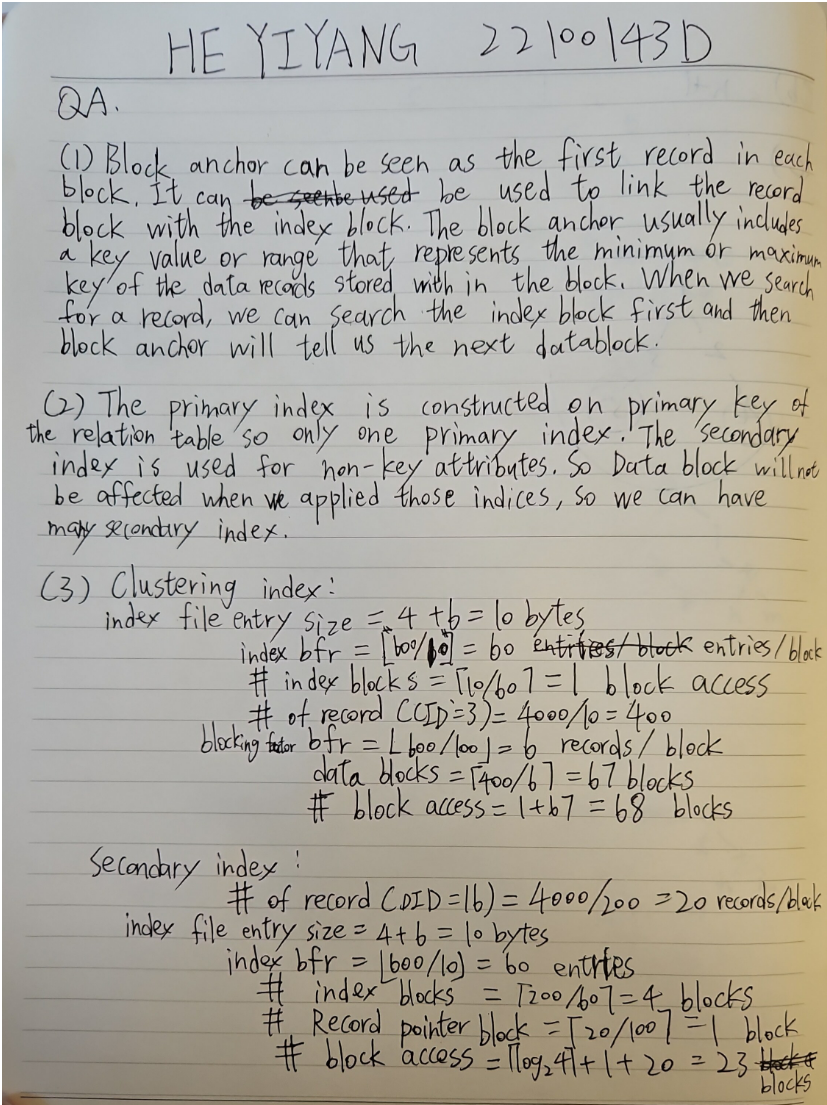 HE YIYANG 22100143D
QA.
(1) Block anchor can be seen as the first record in each
block. It can be seenbe used be used to link the record
block with the index block. The block anchor usually includes
a key value or range that represents the minimum or maximum
key of the data records stored with in the block. When we search
for a record, we can search the index block first and then
block anchor will tell us the next datablock.
(2) The primary index is constructed on primary key of
the relation table so only one primary index. The secondary
index is used for non-key attributes. So Data block will not
be affected when we applied those indices, so we can have
many secondary index.
(3) Clustering index:
index file entry size = 4 + 6 = 10 bytes
index bfr = ⌊600/10⌋ = 60 entities/block entries/block
# index blocks = ⌈10/60⌉ = 1 block access
# of record (CID=3) = 4000/10 = 400
blocking factor bfr = ⌊600/100⌋ = 6 records/block
data blocks = ⌈400/6⌉ = 67 blocks
# block access = 1+67 = 68 blocks
Secondary index:
# of record (DID=16) = 4000/200 = 20 records/block
index file entry size = 4+6 = 10 bytes
index bfr = ⌊600/10⌋ = 60 entries
# index blocks = ⌈200/60⌉ = 4 blocks
# Record pointer block = ⌈20/100⌉ = 1 block
# block access = ⌈log₂4⌉ + 1 + 20 = 23
blocks